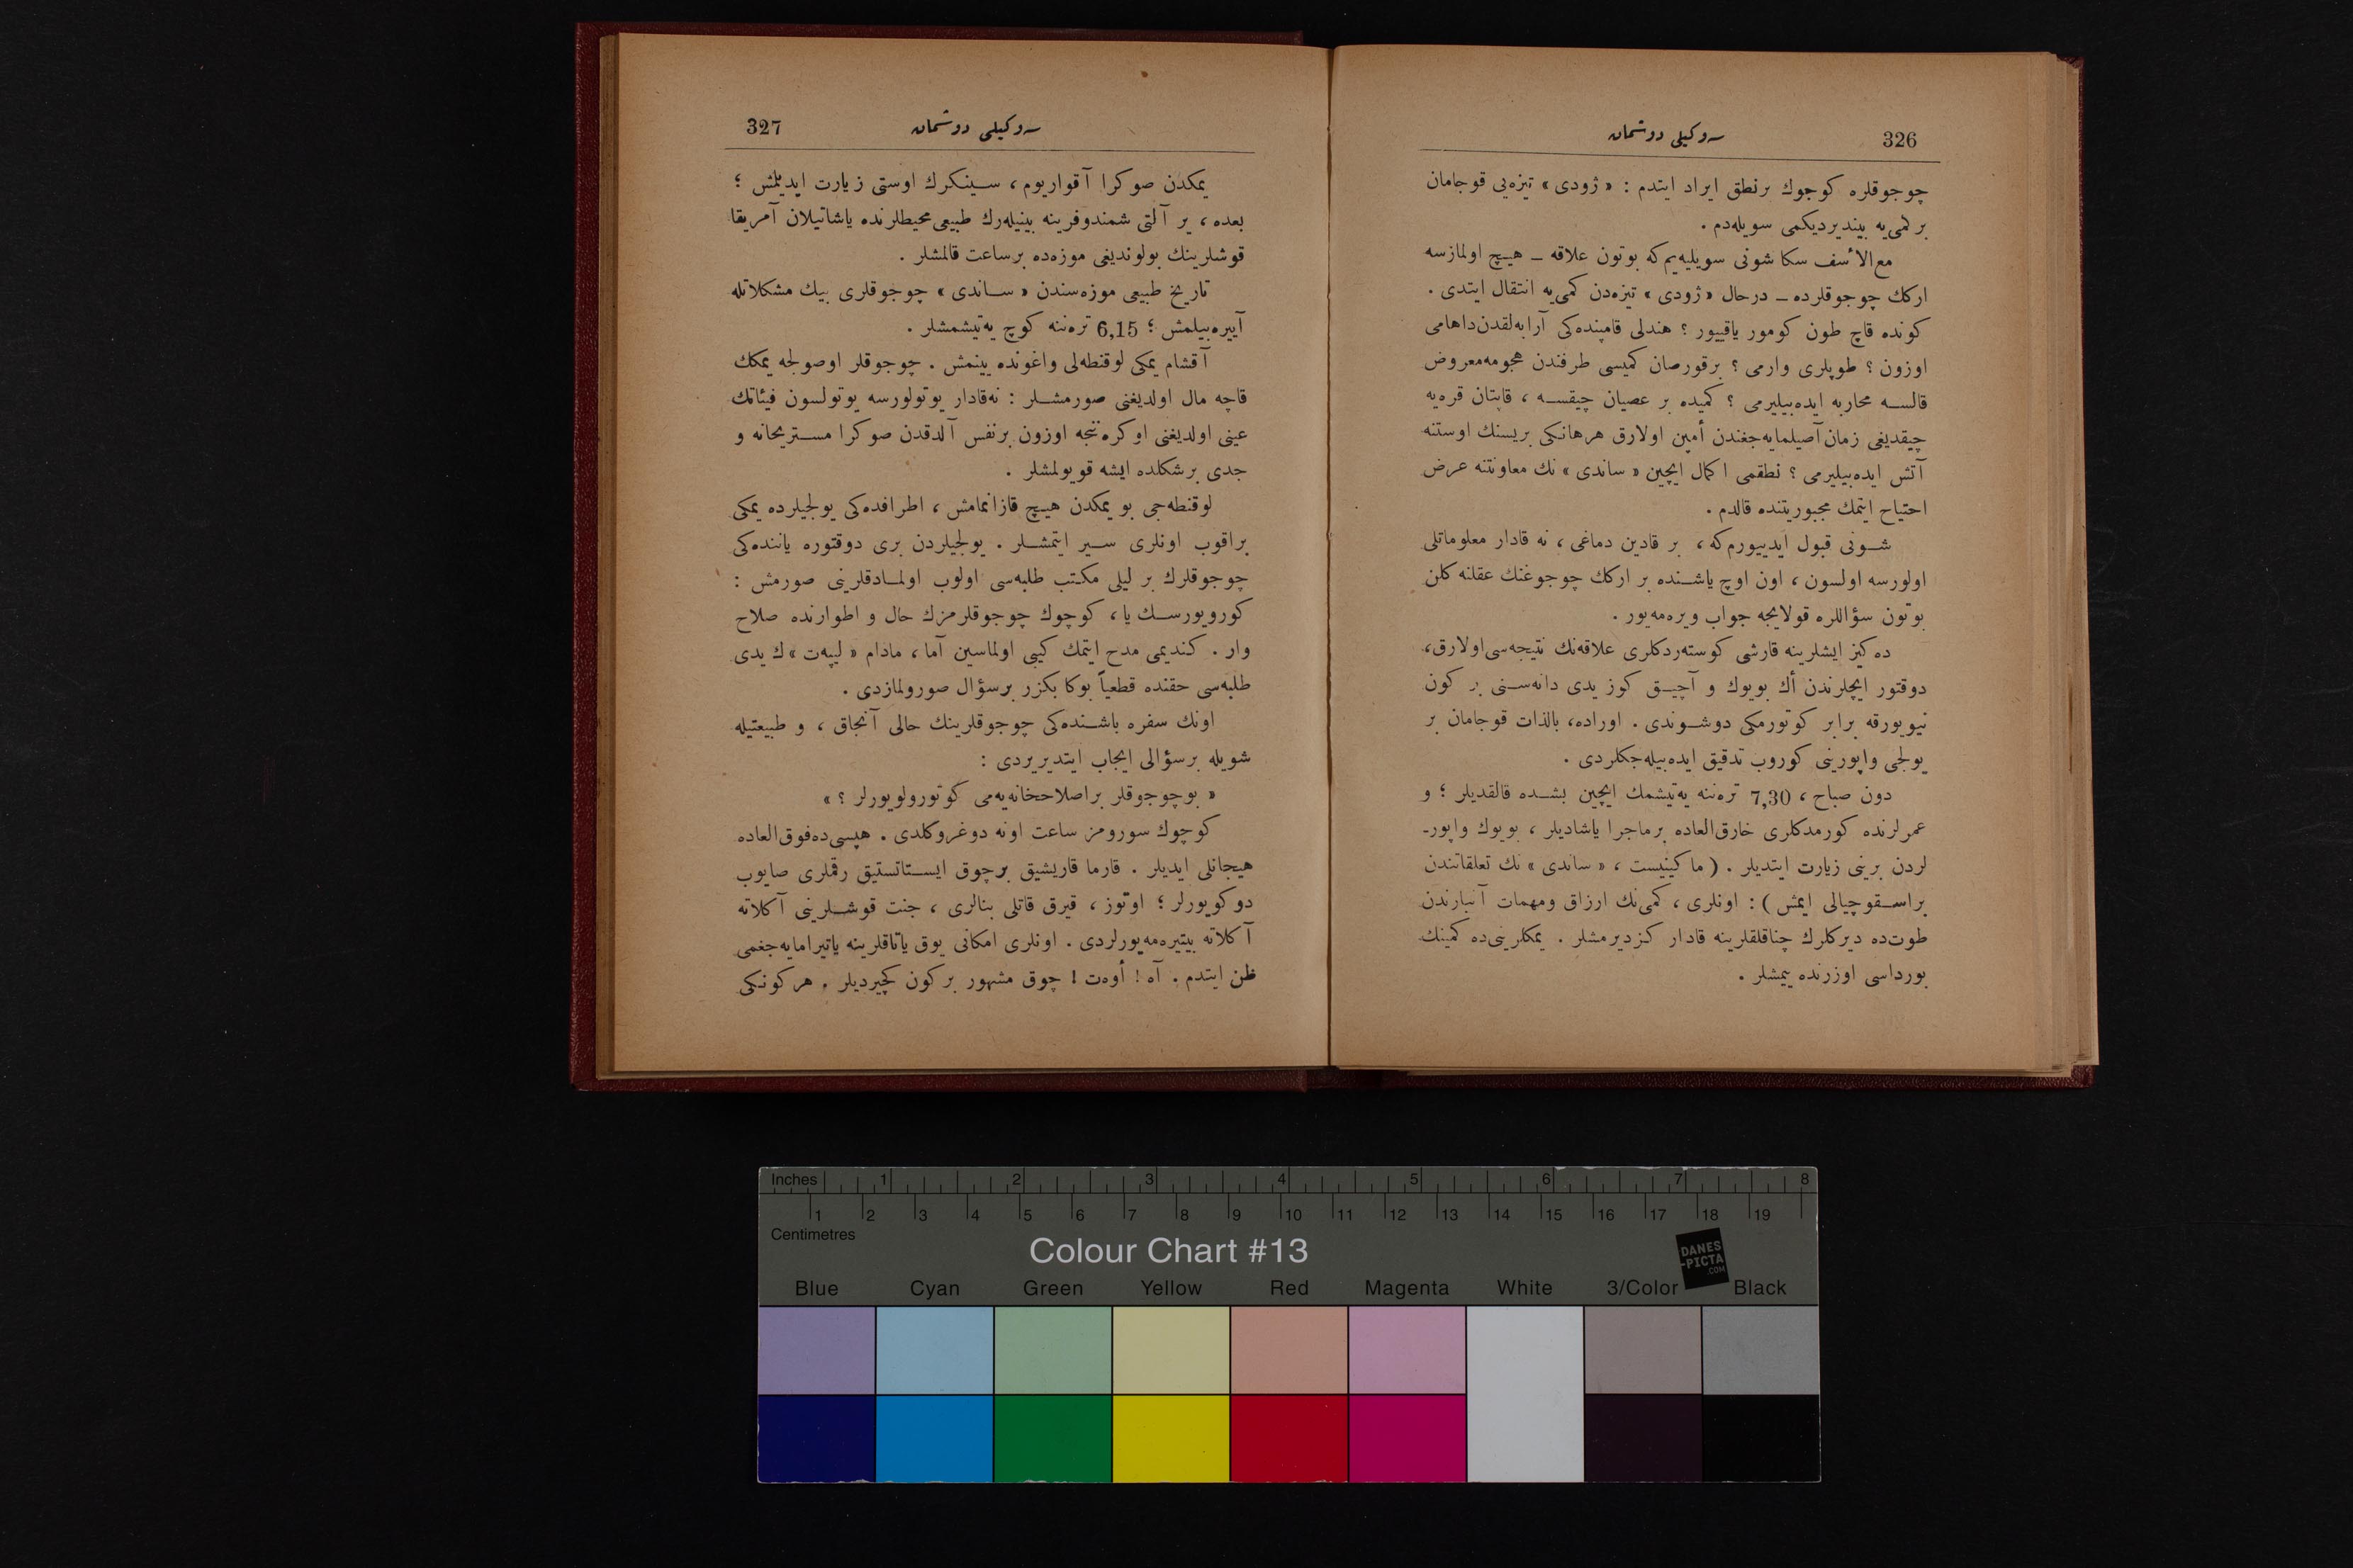 326
سه‌وكيلى دوشمان
چوجوقلره كوچوك برنطق ايراد ايتدم : « ژودى » تيزه‌يى قوجامان
بركمى‌يه بينديرديكمى سويله‌دم .
مع‌الأسف سكا شونى سويليه‌يم‌كه بوتون علاقه ــ هيچ اولمازسه
اركك چوجوقلرده ــ درحال « ژودى » تيزه‌دن كمى‌يه انتقال ايتدى .
كونده قاچ طون كومور ياقييور ؟ هندلى قامپنده‌كى آرابه‌لقدن‌داهامى
اوزون ؟ طوپلرى وارمى ؟ برقورصان كميسى طرفندن هجومه‌معروض
قالسه محاربه ايده‌بيليرمى ؟ كميده بر عصيان چيقسه ، قاپتان قره‌يه
چيقديغى زمان‌آصيلمايه‌جغندن أمين اولارق هرهانكى بريسنك اوستنه
آتش ايده‌بيليرمى ؟ نطقمى اكمال ايچين « ساندى » نك معاونتنه عرض
احتياج ايتمك مجبوريتنده قالدم .
شونى قبول ايدييورم‌كه ، بر قادين دماغى ، نه قادار معلوماتلى
اولورسه اولسون ، اون اوچ ياشنده بر اركك چوجوغنك عقلنه كلن
بوتون سؤاللره قولايجه جواب ويره‌مه‌يور .
ده‌كيز ايشلرينه قارشى كوسته‌ردكلرى علاقه‌نك نتيجه‌سى‌اولارق،
دوقتور ايچلرندن أك بويوك و آچيق كوز يدى دانه‌سنى بر كون
نيويورقه برابر كوتورمكى دوشوندى . اوراده، بالذات قوجامان بر
يولجى واپورينى كوروب تدقيق ايده‌بيله‌جكلردى .
دون صباح ، 7,30 تره‌ننه يه‌تيشمك ايچين بشده قالقديلر ؛ و
عمرلرنده كورمدكلرى خارق‌العاده برماجرا ياشاديلر ، بويوك واپور-
لردن برينى زيارت ايتديلر . ( ماكينيست ، « ساندى » نك تعلقاتندن
براسقوچيالى ايمش ) : اونلرى ، كمى‌نك ارزاق ومهمات آنبارندن
طوت‌ده ديركلرك چناقلقلرينه قادار كزديرمشلر . يمكلرينى‌ده كمينك
بورداسى اوزرنده ييمشلر .
327
سه‌وكيلى دوشمان
يمكدن صوكرا آقواريوم ، سينكرك اوستى زيارت ايديلمش ؛
بعده ، ير آلتى شمندوفرينه بينيله‌رك طبيعى‌محيطلرنده ياشاتيلان آمريقا
قوشلرينك بولونديغى موزه‌ده برساعت قالمشلر .
تاريخ طبيعى موزه‌سندن « ساندى » چوجوقلرى بيك مشكلاتله
آييره‌بيلمش ؛ 6,15 تره‌ننه كوچ يه‌تيشمشلر .
آقشام يمكى لوقنطه‌لى واغونده يينمش . چوجوقلر اوصولجه يمكك
قاچه مال اولديغنى صورمشلر : نه‌قادار يوتولورسه يوتولسون فيئاتك
عينى اولديغنى اوكره‌نجه اوزون برنفس آلدقدن صوكرا مستريحانه و
جدى برشكلده ايشه قويولمشلر .
لوقنطه‌جى بو يمكدن هيچ قازانمامش ، اطرافده‌كى يولجيلرده يمكى
براقوب اونلرى سير ايتمشلر . يولجيلردن برى دوقتوره ياننده‌كى
چوجوقلرك بر ليلى مكتب طلبه‌سى اولوب اولمادقلرينى صورمش :
كورويورسك يا ، كوچوك چوجوقلرمزك حال و اطوارنده صلاح
وار . كنديمى مدح ايتمك كيبى اولماسين آما ، مادام « ليپه‌ت »ك يدى
طلبه‌سى حقنده قطعياً بوكا بكزر برسؤال صورولمازدى .
اونك سفره باشنده‌كى چوجوقلرينك حالى آنجاق ، و طبيعتيله
شويله برسؤالى ايجاب ايتديريردى :
« بوچوجوقلر براصلاحخانه‌يه‌مى كوتورولويورلر ؟ »
كوچوك سورومز ساعت اونه دوغروكلدى . هپسى‌ده‌فوق‌العاده
هيجانلى ايديلر . قارما قاريشيق برچوق ايستاتستيق رقملرى صايوب
دوكويورلر ؛ اوتوز ، قيرق قاتلى بنالرى ، جنت قوشلرينى آكلاته
آكلاته بيتيره‌مه‌يورلردى . اونلرى امكانى يوق ياتاقلرينه ياتيرامايه‌جغمى
ظن ايتدم . آه ! أوه‌ت ! چوق مشهور بركون كچيرديلر . هركونكى
Inches 1 2 3 4 5 6 7 8
1 2 3 4 5 6 7 8 9 10 11 12 13 14 15 16 17 18 19
Centimetres
Colour Chart #13
DANES
-PICTA
.COM
Blue Cyan Green Yellow Red Magenta White 3/Color Black